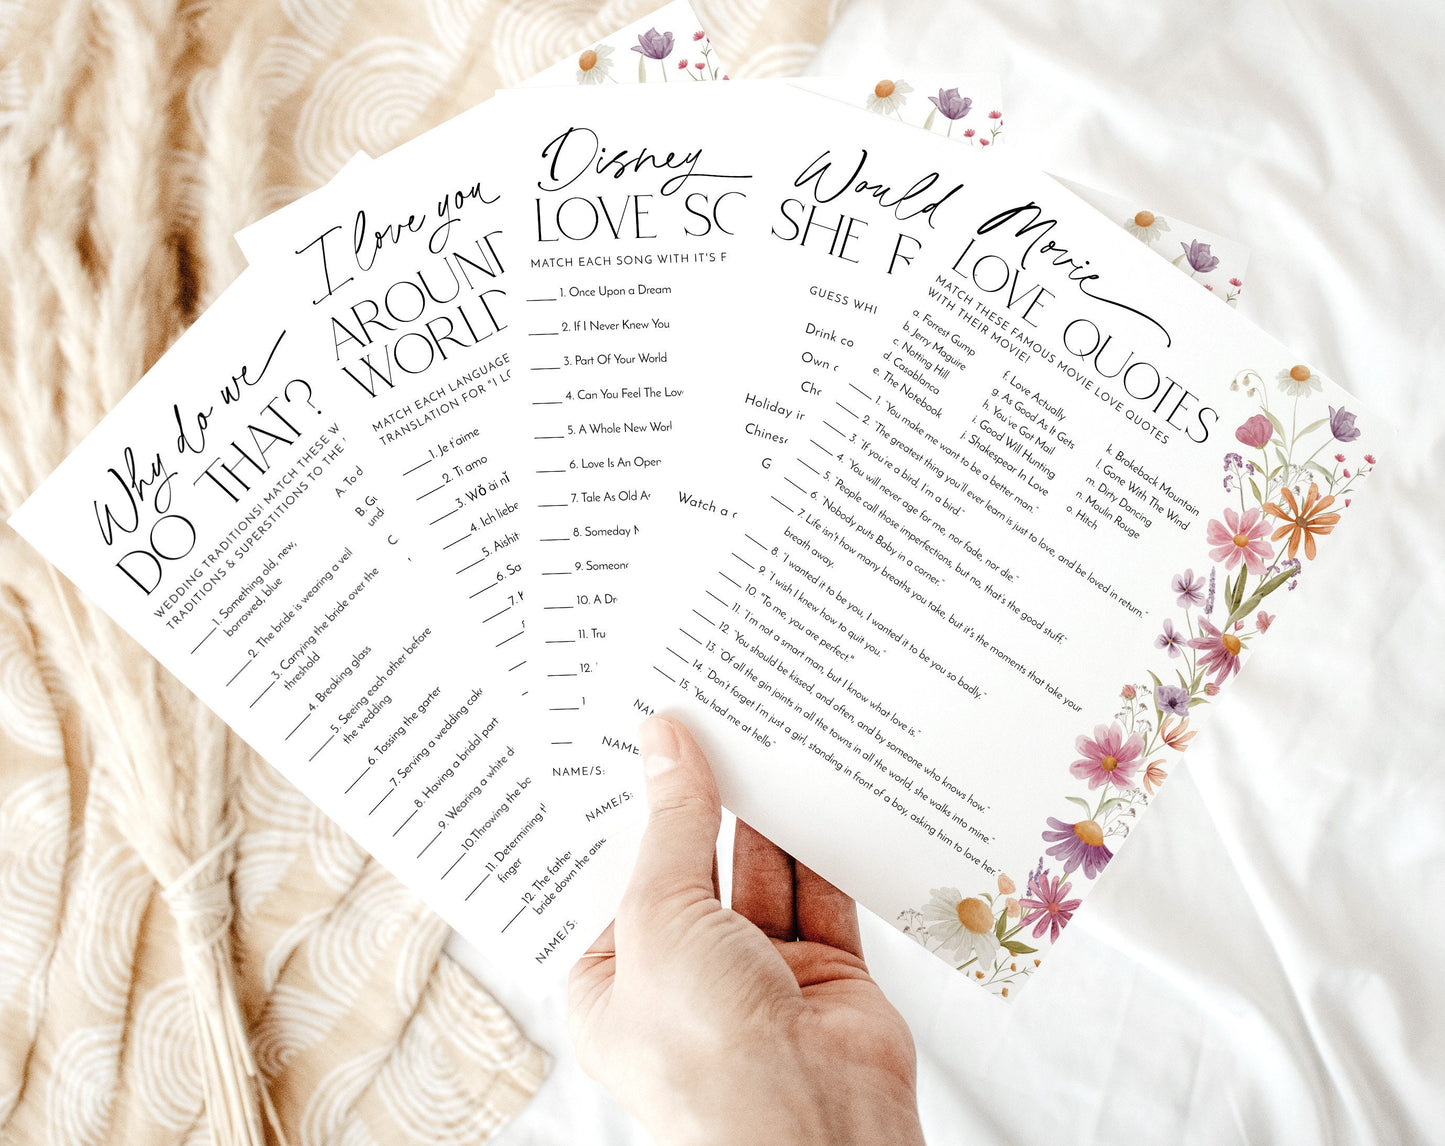 Why do we
DO THAT?
WEDDING TRADITIONS! MATCH THESE W
TRADITIONS & SUPERSTITIONS TO THE
A. To d
B. Gu
und
C
1. Something old, new,
borrowed, blue
2. The bride is wearing a veil
3. Carrying the bride over the
threshold
4. Breaking glass
5. Seeing each other before
the wedding
6. Tossing the garter
7. Serving a wedding cake
8. Having a bridal part
9. Wearing a white d
10.Throwing the bo
11. Determining th
finger
12. The father
bride down the aisle
NAME/S:
I love you
AROUND
WORLD
MATCH EACH LANGUAGE
TRANSLATION FOR "I LO
1. Je t'aime
2. Ti amo
3. Wǒ ài nǐ
4. Ich liebe
5. Aishit
6. Sa
7.
NAME/S:
Disney
LOVE SO
MATCH EACH SONG WITH IT'S F
1. Once Upon a Dream
2. If I Never Knew You
3. Part Of Your World
4. Can You Feel The Lov
5. A Whole New Worl
6. Love Is An Open
7. Tale As Old As
8. Someday M
9. Someon
10. A Dr
11. Tru
12.
1
NAME/S:
Would
SHE R
GUESS WHI
Drink co
Own
Ch
Holiday in
Chines
G
Watch a
NAME
Movie
LOVE QUOTES
MATCH THESE FAMOUS MOVIE LOVE QUOTES
WITH THEIR MOVIE!
a. Forrest Gump
b. Jerry Maguire
c. Notting Hill
d. Casablanca
e. The Notebook
f. Love Actually
g. As Good As It Gets
h. You've Got Mail
i. Good Will Hunting
j. Shakespear In Love
k. Brokeback Mountain
l. Gone With The Wind
m. Dirty Dancing
n. Moulin Rouge
o. Hitch
1. "You make me want to be a better man."
2. "The greatest thing you'll ever learn is just to love, and be loved in return."
3. "If you're a bird, I'm a bird."
4. "You will never age for me, nor fade, nor die."
5. "People call those imperfections, but no, that's the good stuff."
6. "Nobody puts Baby in a corner."
7. "Life isn't how many breaths you take, but it's the moments that take your
breath away.
8. "I wanted it to be you, I wanted it to be you so badly."
9. "I wish I knew how to quit you."
10. "To me, you are perfect."
11. "I'm not a smart man, but I know what love is."
12. "You should be kissed, and often, and by someone who knows how."
13. "Of all the gin joints in all the towns in all the world, she walks into mine."
14. "Don't forget I'm just a girl, standing in front of a boy, asking him to love her."
15. "You had me at hello"
NA